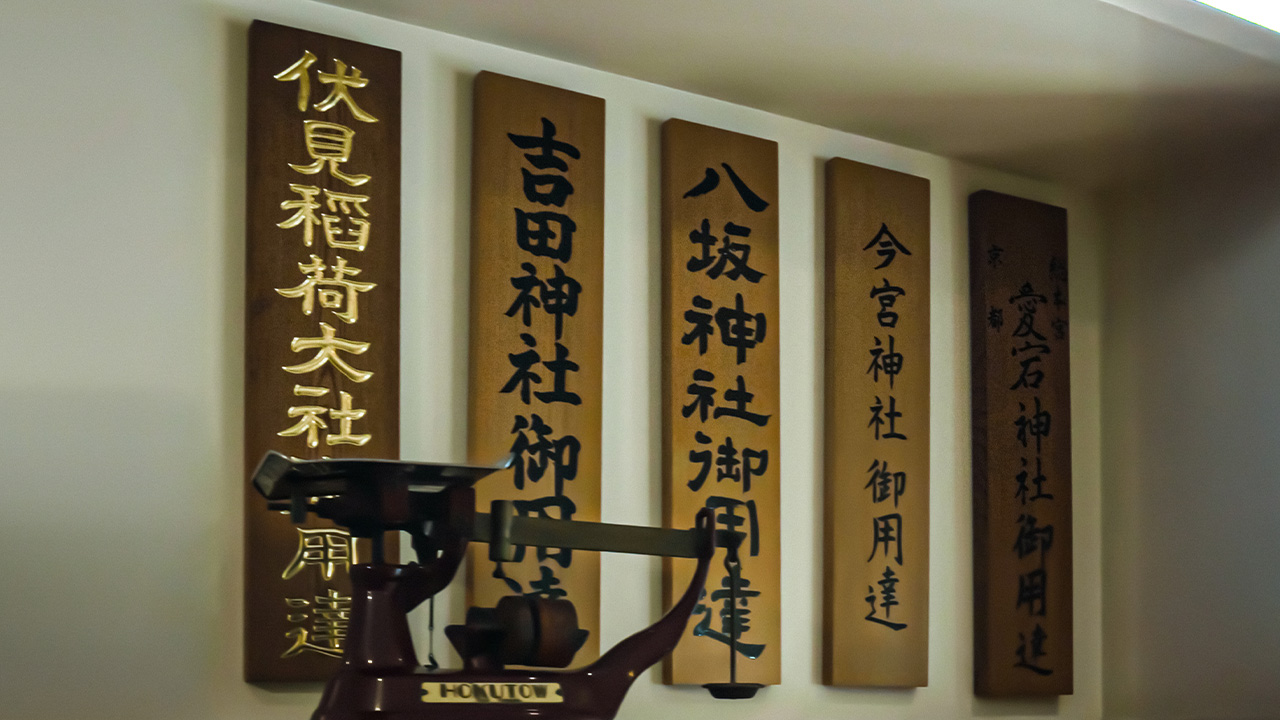 伏見稲荷大社御用達
吉田神社御用達
八坂神社御用達
今宮神社御用達
京都
愛宕神社御用達
HOKUTOW